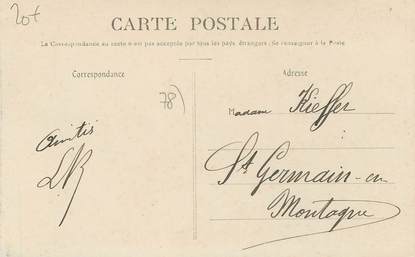 20+
CARTE POSTALE
La Correspondance au recto n'est pas acceptée par tous les pays étrangers: Se renseigner à la Poste
Correspondance
Adresse
78)
Madame Kieffer
Amitiés
LR
St Germain-en
Montagne